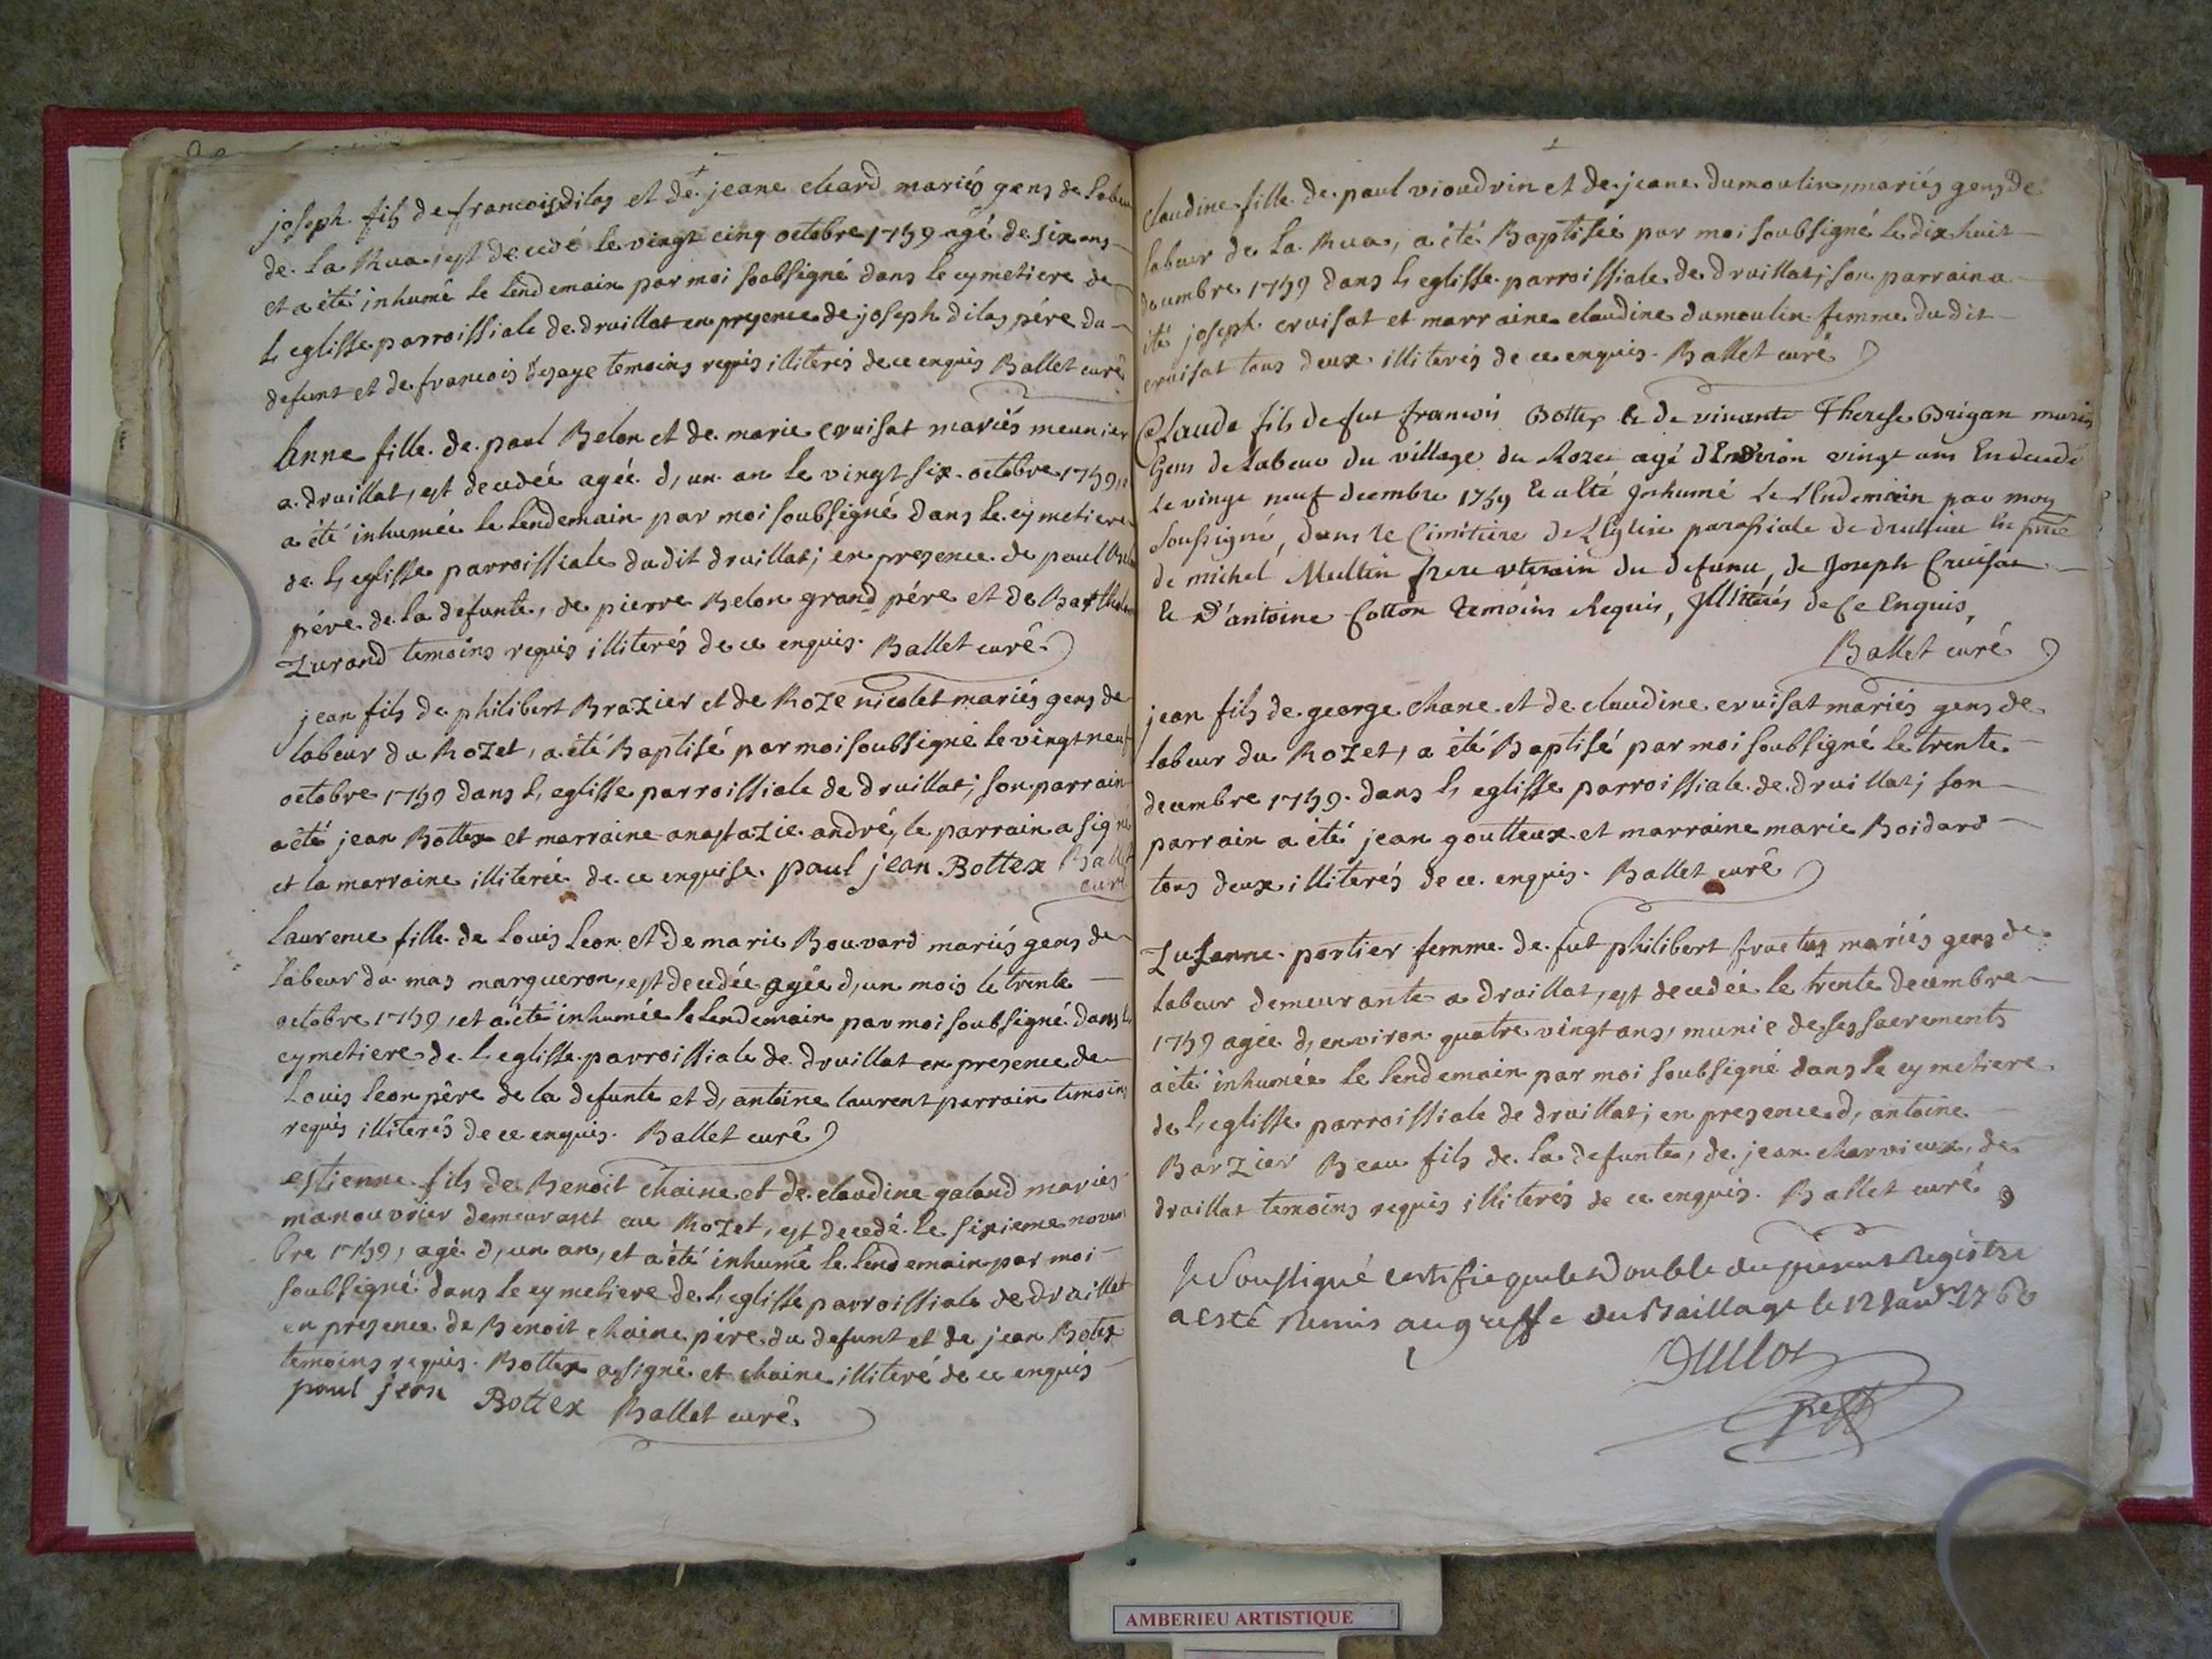 joseph fils de francois dilas et de jeane chard mariés gens de labeur
de la Rua, est decedé le vingt cinq octobre 1759 agé de six ans
et a été inhumé le lendemain par moi soubsigné dans le cymetiere de
l, eglisse parroissiale de druillat en presence de joseph dilas pére du
defunt et de francois desaye temoins requis illiterés de ce enquis Ballet curé
Anne fille de paul Belon et de marie cruisat mariés meunier
a druillat, est decedée agée d, un an le vingt six octobre 1759,
a été inhumée le lendemain par moi soubsigné dans le cymetiere
de l, eglisse parroissiale du dit druillat; en presence de paul
pére de la defunte, de pierre Belon grand pére et de
Zurand temoins requis illiterés de ce enquis. Ballet curé
jean fils de philibert Brazier et de Roze nicolet mariés gens de
labeur du Rozet, a été Baptisé par moi soubsigné le vingt neuf
octobre 1759 dans l, eglisse parroissiale de druillat; son parrain
a été jean Bottex et marraine anastazie andré, le parrain a signé
et la marraine illiterée de ce enquise. paul jean Bottex Ballet
curé
laurence fille de louis leon et de marie Bouvard mariés gens de
labeur du mas margueron, est decedée agée d, un mois le trente
octobre 1759, et a été inhumée le lendemain par moi soubsigné dans le
cymetiere de l, eglisse parroissiale de druillat en presence de
louis leon pére de la defunte et d, antoine laurent parrain temoins
requis illiterés de ce enquis. Ballet curé
estienne fils de Benoit chaine et de claudine galand mariés
manouvrier demeurant au Rozet, est decedé le sixieme novem
bre 1759, agé d, un an, et a été inhumé le lendemain par moi
soubsigné dans le cymetiere de l, eglisse parroissiale de druillat
en presence de Benoit chaine pére du defunt et de jean Botex
temoins requis. Bottex a signé et chaine illiteré de ce enquis
paul jean Bottex Ballet curé
claudine fille de paul vioudrin et de jeane dumoulin, mariés gens de
labeur de la Rua, a été Baptisée par moi soubsigné le dix huit
decembre 1759 dans l, eglisse parroissiale de druillat; son parrain a
été joseph cruisat et marraine claudine dumoulin femme du dit
cruisat tous deux illiterés de ce enquis. Ballet curé
Claude fils de fut francois Bottex et de vivante Therese Brigan mariés
Gens de Labeur du village du Rozet agé dEnviron vingt ans En decedé
le vingt neuf decembre 1759 Et a Eté Inhumé Le LEndemain par moy
soussigné, dans le Cimitiere de LEglise paroissiale de druillat En pnce
de michel Multin frere uterain du defunt, de Joseph Cruisat
Et D'antoine Cotton temoins Requis, Illitterés de Ce Enquis,
Ballet curé
jean fils de george chane et de claudine cruisat mariés gens de
labeur du Rozet, a été Baptisé par moi soubsigné le trente
decembre 1759. dans l, eglisse parroissiale de druillat; son
parrain a été jean goutteux et marraine marie Boidard
tous deux illiterés de ce enquis. Ballet curé
Zuzanne portier femme de fut philibert fructus mariés gens de
labeur demeurante a druillat, est decedée le trente decembre
1759 agée d, environ quatre vingt ans, munie de ses sacrements
a été inhumée le lendemain par moi soubsigné dans le cymetiere
de l, eglisse parroissiale de druillat; en presence d, antoine
Barzier Beau fils de la defunte, de jean charvieux, de
druillat temoins requis illiterés de ce enquis. Ballet curé
Je Soussigné certifie que le Double du present Registre
a esté Remis au greffe du Baillage le 12 Janv. 1760
AMBERIEU ARTISTIQUE